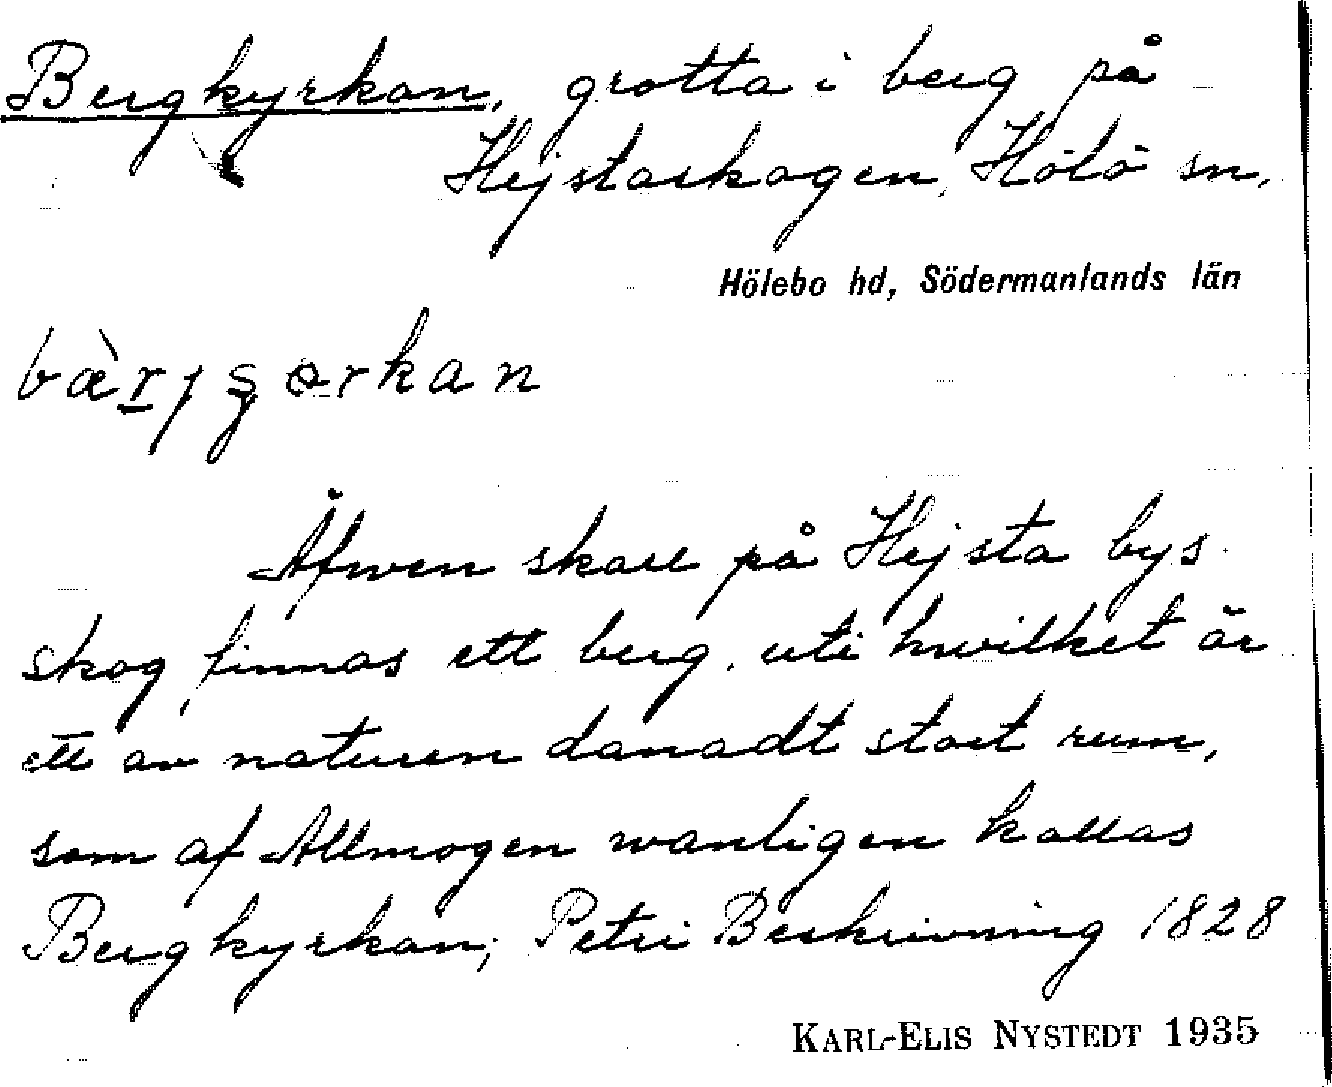 Bergkyrkan, grotta i berg på
Hejstaskogen, Hölö sn,
Hölebo hd, Södermanlands län
bæ̀rjçørkan
Äfwen skall på Hejsta bys
skog finnas ett berg, uti hwilket är
ett av naturen danadt stort rum,
som af Allmogen wanligen kallas
Bergkyrkan; Petri Beskrivning 1828
KARL-ELIS NYSTEDT 1935